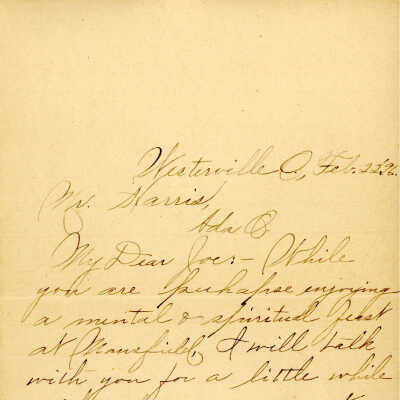 Westerville O., Feb. 22 '96.
Mr. Harris,
Ada O
My Dear Joe:- While
you are perhapse enjoying
a mental & spiritual feast
at Mansfield, I will talk
with you for a little while